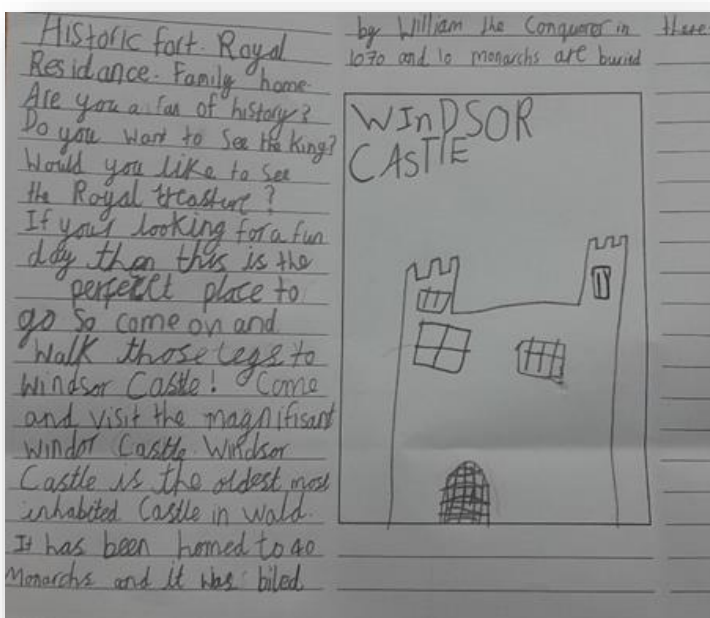 Historic fort. Royal
Residance. Family home.
Are you a fan of history?
Do you want to see the king?
Would you like to see
the Royal treasure?
If your looking for a fun
day then this is the
perfect place to
go So come on and
Walk those legs to
Windsor Castle! Come
and visit the magnifisant
windor Castle. Windsor
Castle is the oldest most
inhabited Castle in wald.
It has been homed to 40
Monarchs and it was biled
by William the Conqueror in
1070 and 10 monarchs are buried
there
WInDSOR
CASTlE